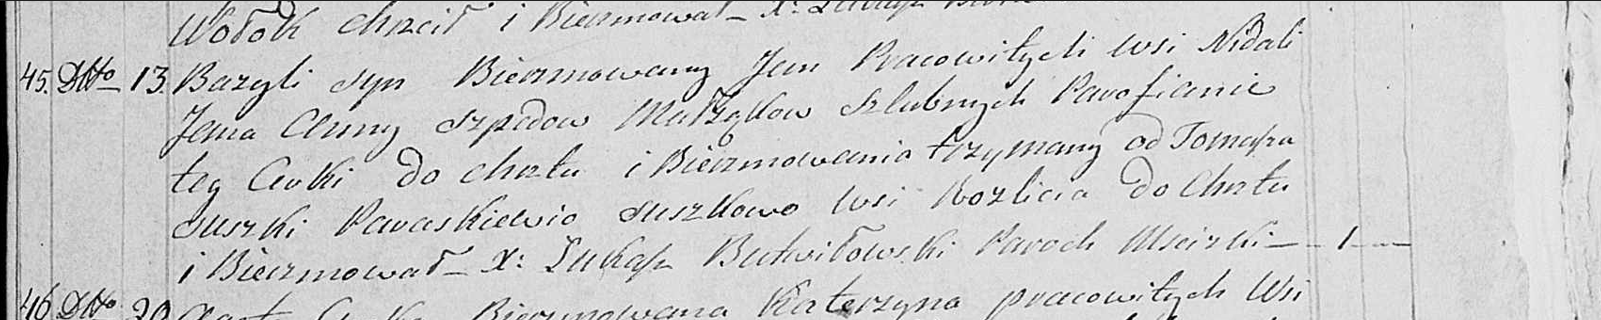 Wołok chrcił i Bierzmował – X: Łukasz
45. Dtto – 13. Bazyli syn Bierzmowany Jan Pracowitych Wsi Nidali
Jana Anny Szpedow Małżąkow Szlubnych Parafianie
tey Cerkwi do chrztu i Bierzmowania trzymany od Tomasza
Suszki Paraskiewio Suszkowo Wsi Rozlicia do Chrztu
i Bierzmował – X: Łukasz Butwiłowski Paroch Mscizki – 1 –
46 Dtto 20 Bierzmowana Katerzyna pracowitych Wsi